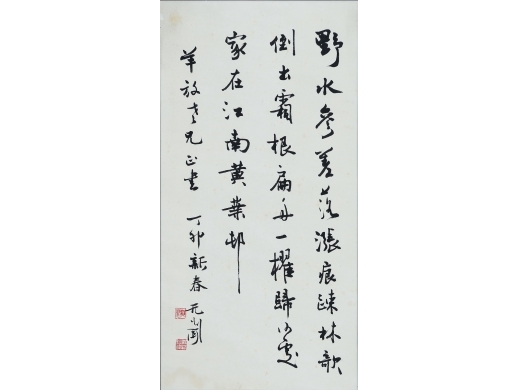 野水參差落漲痕踈林欹
倒出霜根扁舟一櫂歸何處
家在江南黃葉邨
羊放老兄正書 丁卯新春